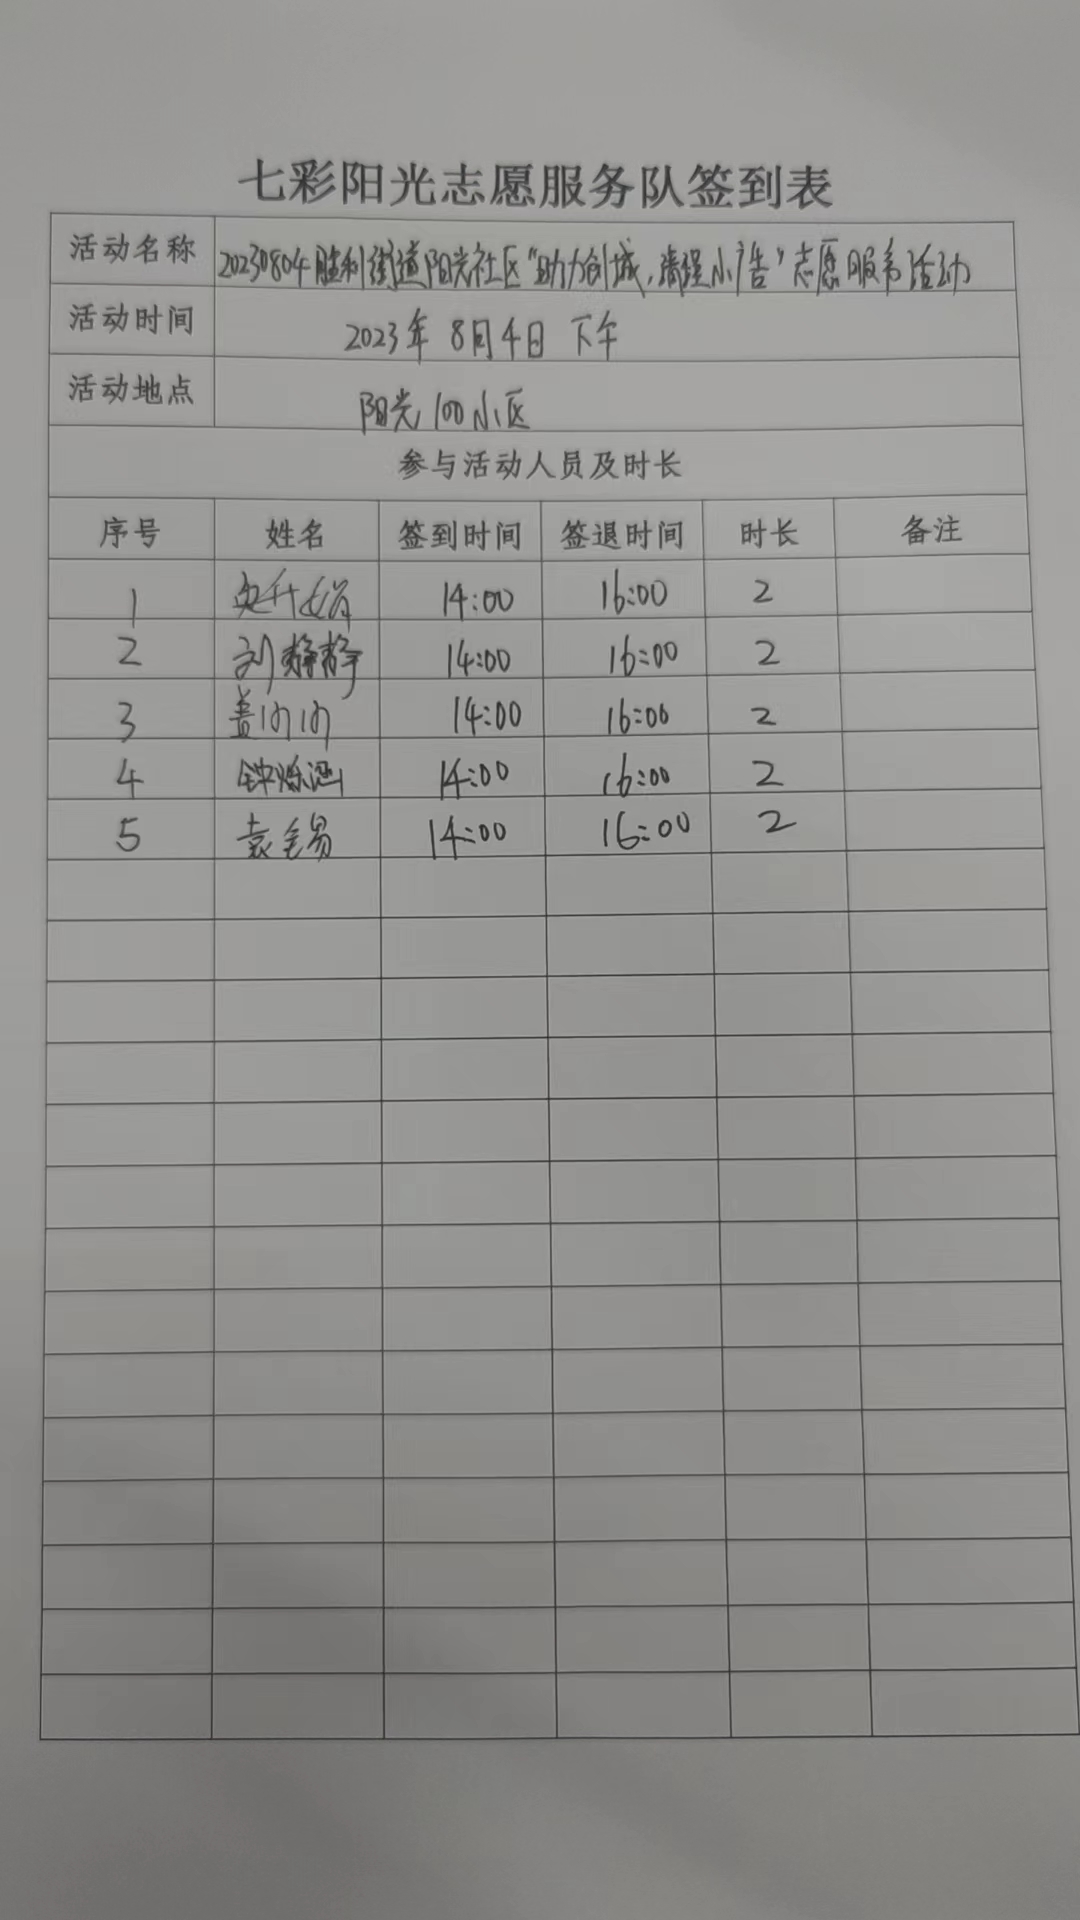 七彩阳光志愿服务队签到表
活动名称 20230804胜利街道阳光社区“助力创城,清理小广告”志愿服务活动
活动时间 2023年8月4日 下午
活动地点 阳光100小区
参与活动人员及时长
序号 姓名 签到时间 签退时间 时长 备注
1 14:00 16:00 2
2 刘静静 14:00 16:00 2
3 14:00 16:00 2
4 14:00 16:00 2
5 14:00 16:00 2